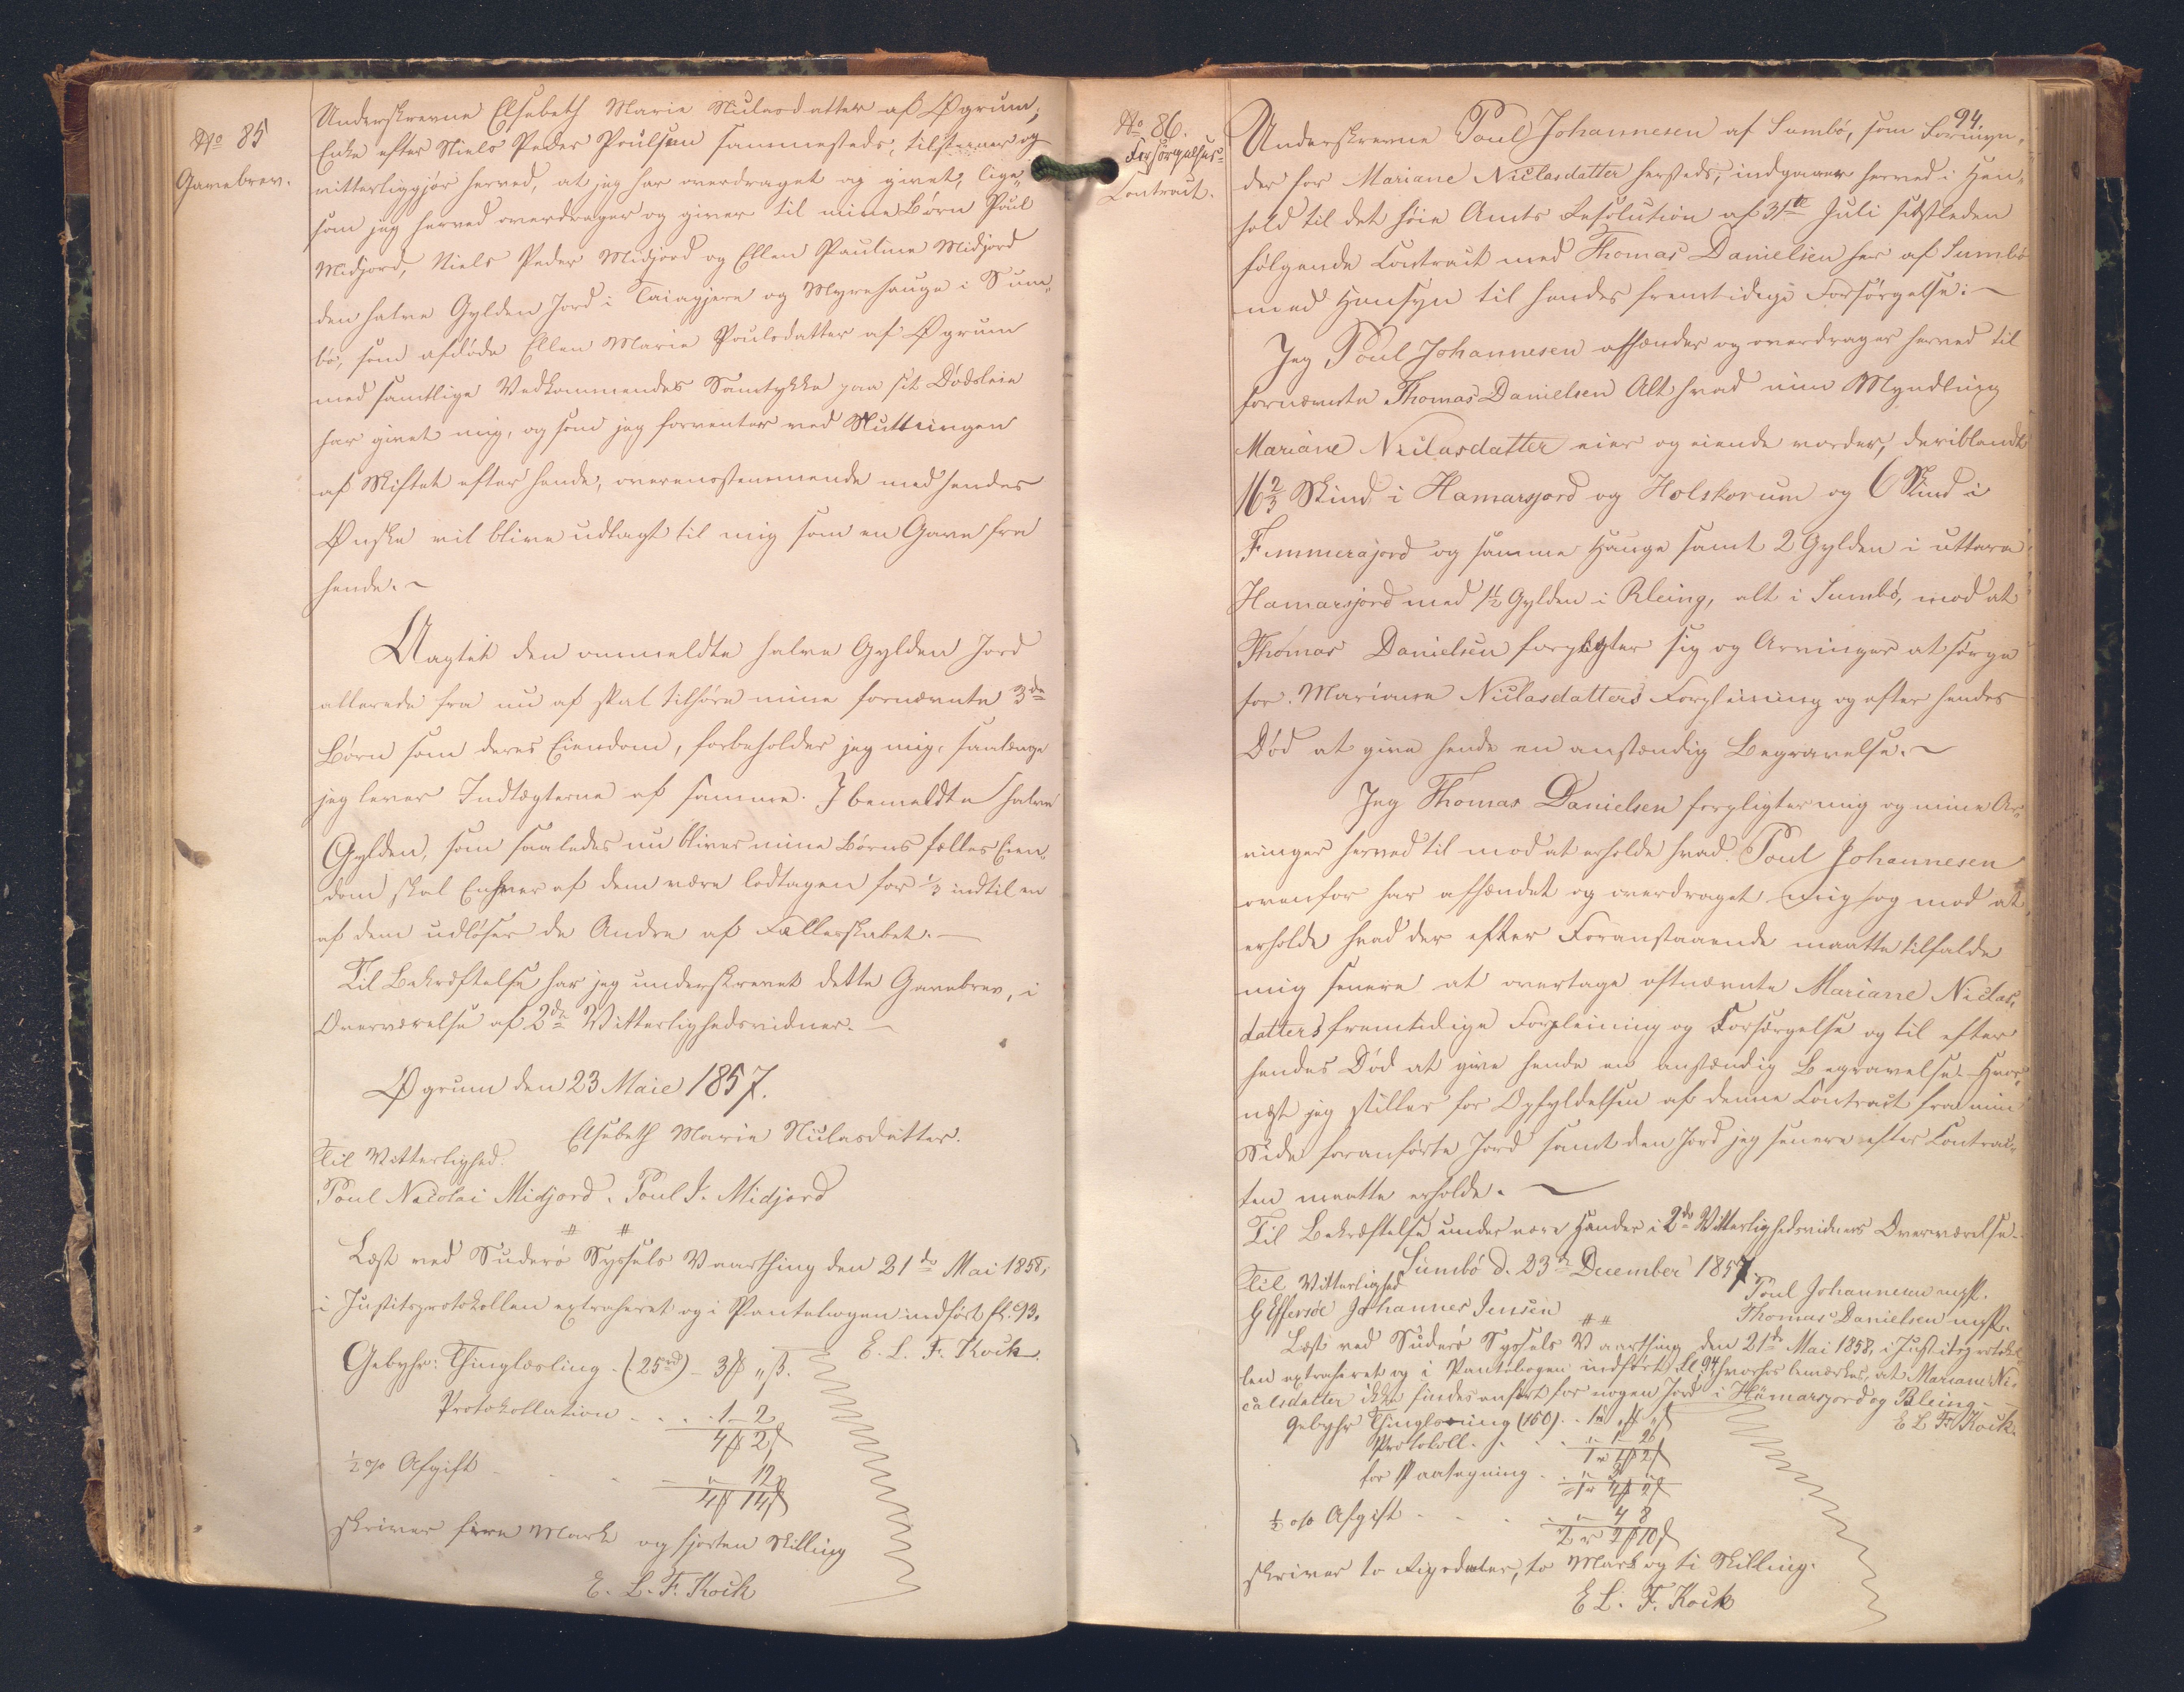 No 85
Gavebrev.
Underskrevne Elsebeth Marie Niclasdatter af Øgrum,
Enke efter Niels Peder Poulsen sammesteds, tilstaaer og
vitterliggjør herved, at jeg har overdraget og givet, lige-
som jeg herved overdrager og giver til mine Børn Poul
Midjord, Niels Peder Midjord og Ellen Pauline Midjord
den halve Gylden Jord i Taiagjere og Myrehauge i Sum-
bø, som afdøde Ellen Marie Poulsdatter af Øgrum
med samtlige Vedkommendes Samtykke paa sit Dødsleie
har givet mig, og som jeg forventer ved Slutningen
af Skiftet efter hende, overensstemmende med hendes
Ønske vil blive udlagt til mig som en Gave fra
hende. ~
Uagtet den ommeldte halve Gylden Jord
allerede fra nu af skal tilhøre mine fornævnte 3de
Børn som deres Eiendom, forbeholder jeg mig, saalænge
jeg lever Indtægterne af samme. I bemeldte halve
Gylden, som saaledes nu bliver mine Børns fælles Eien-
dom skal Enhver af dem være lodtagen for 1/3 indtil en
af dem udløser de Andre af Fællesskabet. —
Til Bekræftelse har jeg underskrevet dette Gavebrev, i
Overværelse af 2de Vitterlighedsvidner. —
Øgrum den 23 Maie 1857.
Elsebeth Marie Niclasdatter.
Til Vitterlighed.
Poul Nicolai Midjord. Poul J. Midjord
# #
Læst ved Suderø Syssels Vaarthing den 21de Mai 1858,
i Justitsprotokollen extraheret og i Pantebogen indført fl. 93.
E. L. F. Kock.
Gebyhr: Thinglæsning - (25rd) - 3 ₰ " ß.
Protokollation . . . . 1 - 2
4 ₰ 2 ß
1/2 o/o Afgift - - - " 12
4 ₰ 14 ß
skriver fire Mark og fjorten Skilling
E. L. F. Kock
94.
No 86.
Forsørgelses-
Contract.
Underskrevne Poul Johannesen af Sumbø, som Formyn-
der for Mariane Niclasdatter hersteds, indgaaer herved i Hen-
hold til det høie Amts Resolution af 31te Juli sidstleden
følgende Contract med Thomas Danielsen her af Sumbø
med Hensyn til hendes fremtidige Forsørgelse: —
Jeg Poul Johannesen afhænder og overdrager herved til
fornævnte Thomas Danielsen Alt hvad min Myndling
Mariane Niclasdatter eier og eiende vorder, deriblandt
16 2/3 Skind i Hamarsjord og Holskorum og 6 Skind i
Fimmerajord og samme Hauge samt 2 Gylden i uttara
Hamarsjord med 1 1/2 Gylden i Bleing, alt i Sumbø, mod at
Thomas Danielsen forpligter sig og Arvinger at sørge
for Mariane Niclasdatters Forpleining og efter hendes
Død at give hende en anstændig Begravelse. ~
Jeg Thomas Danielsen forpligter mig og mine Ar-
vinger herved til mod at erholde hvad Poul Johannesen
ovenfor har afhændet og overdraget mig og mod at
erholde hvad der efter Foranstaaende maatte tilfalde
mig senere at overtage oftnævnte Mariane Niclas-
datters fremtidige Forpleining og Forsørgelse og til efter
hendes Død at give hende en anstændig Begravelse. Hvor-
næst jeg stiller for Opfyldelsen af denne Contract fra min
Side foranførte Jord samt den Jord jeg senere efter Contrac-
ten maatte erholde. ~
Til Bekræftelse under vore Hænder i 2de Vitterlighedsvidners Overværelse.
Sumbø d. 23de December 1857.
Til Vitterlighed
Poul Johannesen mpp.
G Effersøe Johannes Jensen
Thomas Danielsen mpp.
# #
Læst ved Suderø Syssels Vaarthing den 21de Mai 1858, i Justitsprotokol-
len extraheret og i Pantebogen indført fl 94, hvorhos bemærkes, at Mariane Ni-
calsdatter ikke findes anført for nogen Jord i Hamarsjord og Bleing. —
E L F. Kock.
Gebyhr Thinglæsning (150) . . 1rd " ₰ " ß
Protokoll. . . . " 1 - 2
1 rd 1 ₰ 2 ß
for Paategning . . " 3 "
1 rd 4 ₰ 2 ß
1/2 o/o Afgift . . . " 4 8
2 rd 2 ₰ 10 ß
skriver to Rigsdaler, to Mark og ti Skilling.
E L. F. Kock